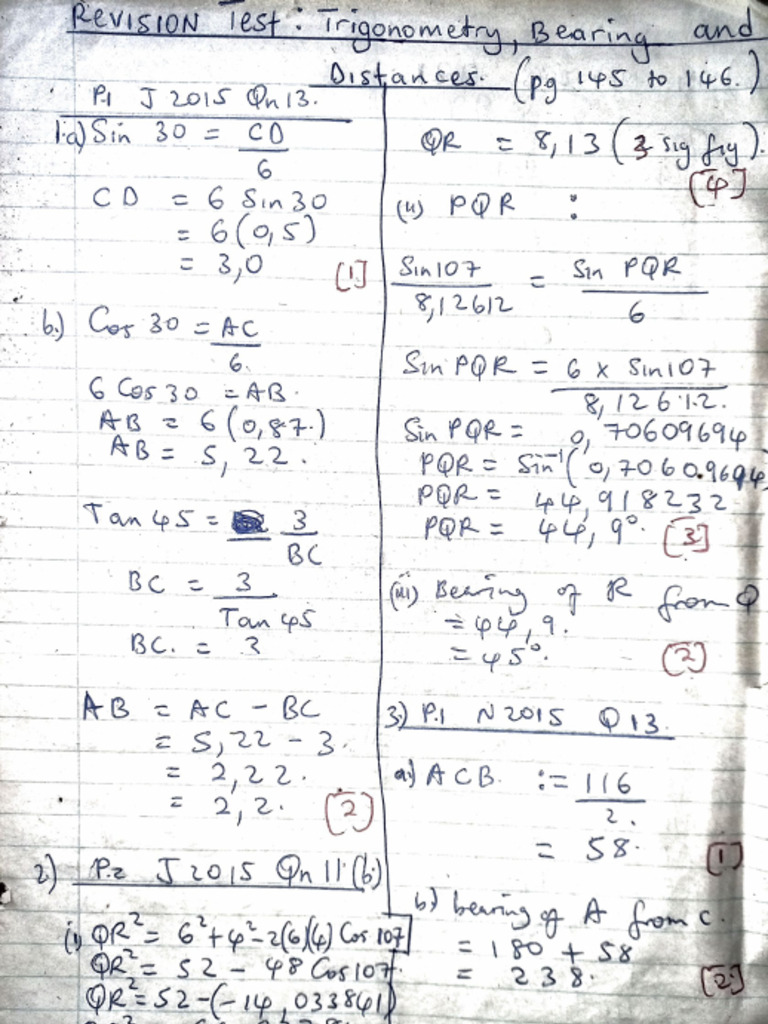 REVISION Test: Trigonometry, Bearing and
Distances. (pg 145 to 146.)
P.1 J 2015 Qn 13.
1.a) Sin 30 = CD
6
CD = 6 Sin 30
= 6(0,5)
= 3,0 [1]
b.) Cos 30 = AC
6.
6 Cos 30 = AB.
AB = 6(0,87.)
AB = 5,22.
Tan 45 = 3
BC
BC = 3
Tan 45
BC. = 3
AB = AC - BC
= 5,22 - 3.
= 2,22.
= 2,2. [2]
2) P.2 J 2015 Qn 11 (b)
(i) QR² = 6² + 4² - 2(6)(4) Cos 107
QR² = 52 - 48 Cos 107.
QR² = 52 - (-14,033841)
QR = 8,13 (3 sig fig).
[4]
(ii) PQR :
Sin 107 = Sin PQR
8,12612 6
Sin PQR = 6 x Sin 107
8,12612.
Sin PQR = 0,70609694
PQR = Sin⁻¹(0,70609694
PQR = 44,918232
PQR = 44,9°. [3]
(iii) Bearing of R from Q
= 44,9.
= 45°. [2]
3.) P.1 N 2015 Q 13.
a.) ACB. := 116
2.
= 58. [1]
b) bearing of A from C.
= 180 + 58
= 238. [2]